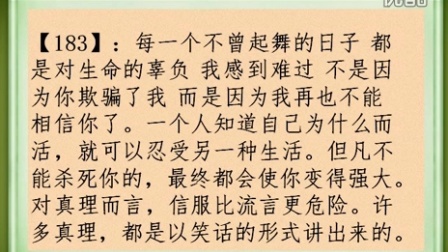 【183】：每一个不曾起舞的日子 都
是对生命的辜负 我感到难过 不是因
为你欺骗了我 而是因为我再也不能
相信你了。一个人知道自己为什么而
活，就可以忍受另一种生活。但凡不
能杀死你的，最终都会使你变得强大。
对真理而言，信服比流言更危险。许
多真理，都是以笑话的形式讲出来的。